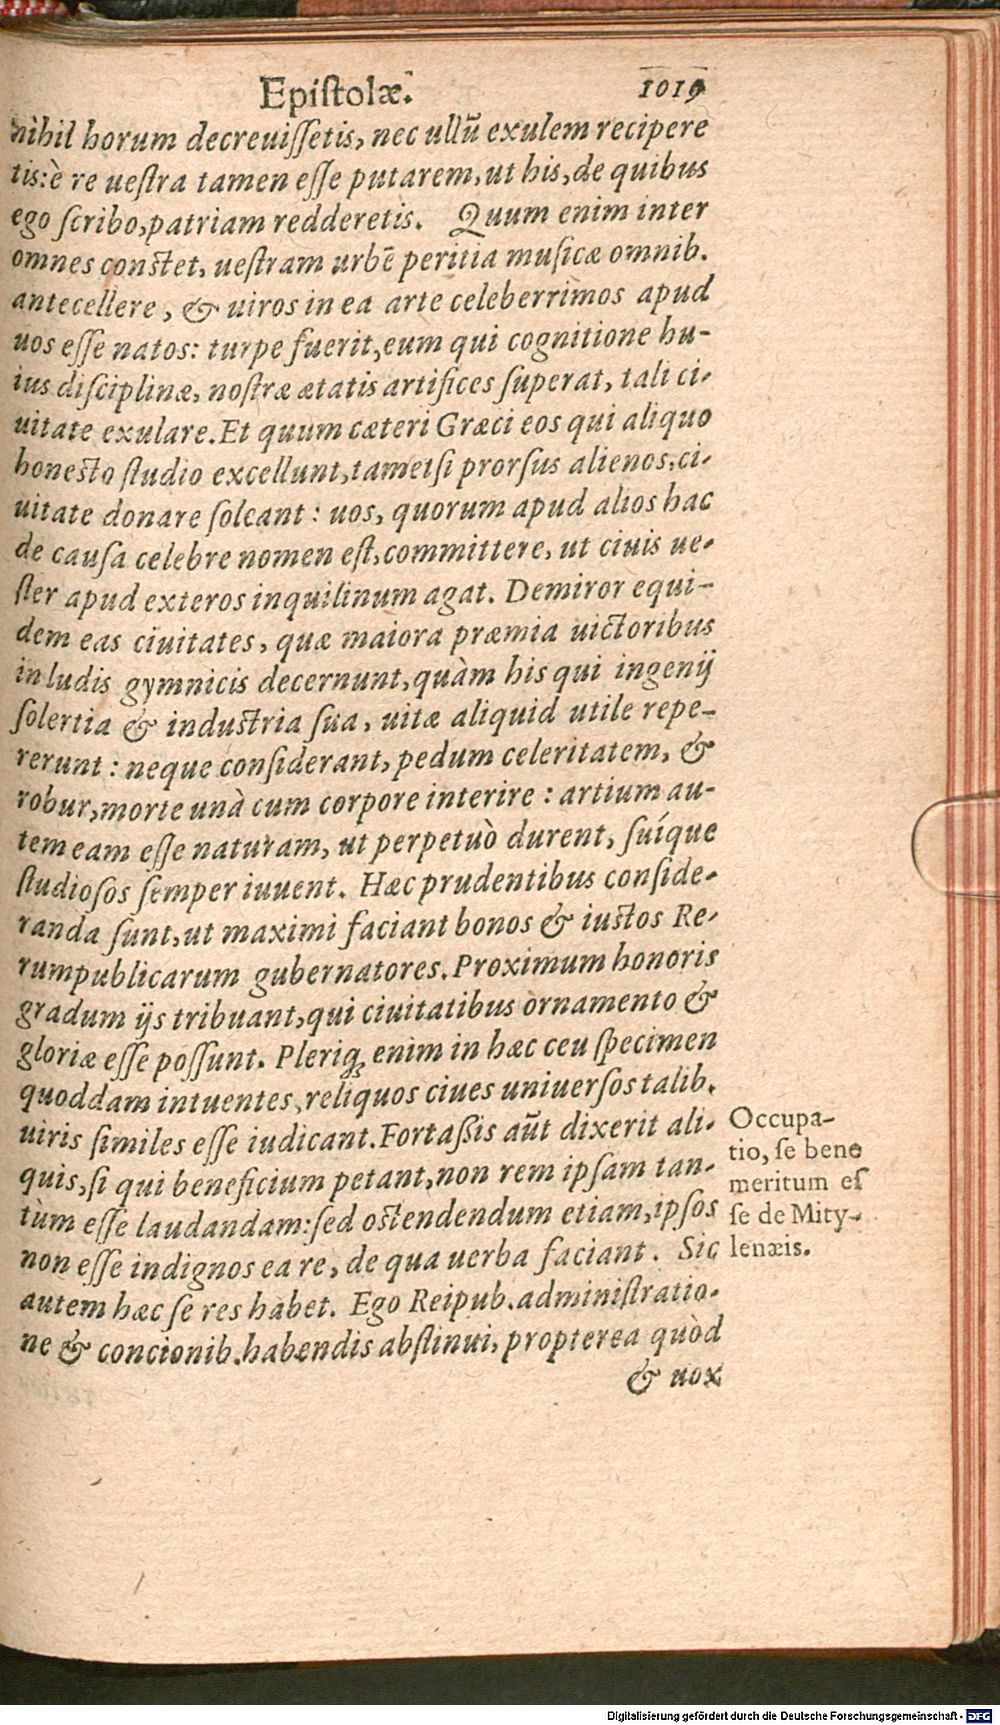 Epiſtolæ. 1019
nihil horum decreuiſſetis, nec ullū exulem recipere
tis: è re ueſtra tamen eſſe putarem, ut his, de quibus
ego ſcribo, patriam redderetis. Quum enim inter
omnes conſtet, ueſtram urbē peritia muſicæ omnib.
antecellere, & uiros in ea arte celeberrimos apud
uos eſſe natos: turpe fuerit, eum qui cognitione hu-
ius diſciplinæ, noſtræ ætatis artifices ſuperat, tali ci-
uitate exulare. Et quum cæteri Græci eos qui aliquo
honeſto ſtudio excellunt, tametſi prorſus alienos, ci-
uitate donare ſoleant: uos, quorum apud alios hac
de cauſa celebre nomen eſt, committere, ut ciuis ue-
ſter apud exteros inquilinum agat. Demiror equi-
dem eas ciuitates, quæ maiora præmia uictoribus
in ludis gymnicis decernunt, quàm his qui ingenij
ſolertia & induſtria ſua, uitæ aliquid utile repe-
rerunt: neque conſiderant, pedum celeritatem, &
robur, morte unà cum corpore interire: artium au-
tem eam eſſe naturam, ut perpetuò durent, ſuíque
ſtudioſos ſemper iuuent. Hæc prudentibus conſide-
randa ſunt, ut maximi faciant bonos & iuſtos Re-
rumpublicarum gubernatores. Proximum honoris
gradum ijs tribuant, qui ciuitatibus ornamento &
gloriæ eſſe poſſunt. Pleriqꝫ enim in hæc ceu ſpecimen
quoddam intuentes, reliquos ciues uniuerſos talib.
uiris ſimiles eſſe iudicant. Fortaßis aūt dixerit ali-
quis, ſi qui beneficium petant, non rem ipſam tan-
tùm eſſe laudandam: ſed oſtendendum etiam, ipſos
non eſſe indignos ea re, de qua uerba faciant. Sic
autem hæc ſe res habet. Ego Reipub. adminiſtratio-
ne & concionib. habendis abſtinui, propterea quòd
& uox
Occupa-
tio, ſe bene
meritum eſ
ſe de Mity-
lenæis.
Digitalisierung gefördert durch die Deutsche Forschungsgemeinschaft - DFG